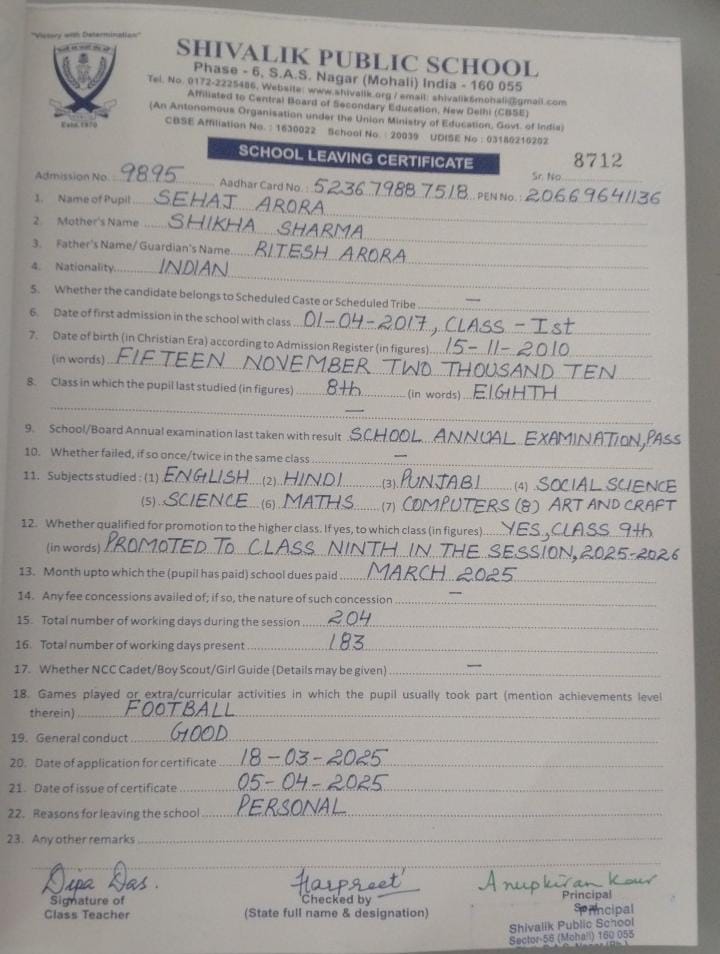 "Victory with Determination"
SHIVALIK PUBLIC SCHOOL
Phase - 6, S.A.S. Nagar (Mohali) India - 160 055
Tel. No. 0172-2225486, Website: www.shivalik.org / email: shivalik6mohali@gmail.com
Affiliated to Central Board of Secondary Education, New Delhi (CBSE)
(An Antonomous Organisation under the Union Ministry of Education, Govt. of India)
CBSE Affiliation No. : 1630022 School No. : 20039 UDISE No : 03180210202
Estd. 1970
SCHOOL LEAVING CERTIFICATE
Sr. No. 8712
Admission No. 9895 Aadhar Card No. : 5236 7988 7518 PEN No. : 20669641136
1. Name of Pupil SEHAJ ARORA
2. Mother's Name SHIKHA SHARMA
3. Father's Name/ Guardian's Name RITESH ARORA
4. Nationality INDIAN
5. Whether the candidate belongs to Scheduled Caste or Scheduled Tribe —
6. Date of first admission in the school with class 01-04-2017, CLASS - Ist
7. Date of birth (in Christian Era) according to Admission Register (in figures) 15-11-2010
(in words) FIFTEEN NOVEMBER TWO THOUSAND TEN
8. Class in which the pupil last studied (in figures) 8th (in words) EIGHTH
—
9. School/Board Annual examination last taken with result SCHOOL ANNUAL EXAMINATION, PASS
10. Whether failed, if so once/twice in the same class —
11. Subjects studied : (1) ENGLISH (2) HINDI (3) PUNJABI (4) SOCIAL SCIENCE
(5) SCIENCE (6) MATHS (7) COMPUTERS (8) ART AND CRAFT
12. Whether qualified for promotion to the higher class. If yes, to which class (in figures) YES, CLASS 9th
(in words) PROMOTED TO CLASS NINTH IN THE SESSION, 2025-2026
13. Month upto which the (pupil has paid) school dues paid MARCH 2025
14. Any fee concessions availed of; if so, the nature of such concession —
15. Total number of working days during the session 204
16. Total number of working days present 183
17. Whether NCC Cadet/Boy Scout/Girl Guide (Details may be given) —
18. Games played or extra/curricular activities in which the pupil usually took part (mention achievements level
therein) FOOTBALL
19. General conduct GOOD
20. Date of application for certificate 18-03-2025
21. Date of issue of certificate 05-04-2025
22. Reasons for leaving the school PERSONAL
23. Any other remarks
Dipa Das. Harpreet Anupkiran Kaur
Signature of Class Teacher
Checked by
(State full name & designation)
Principal
Principal
Shivalik Public School
Sector-56 (Mohali) 160 055